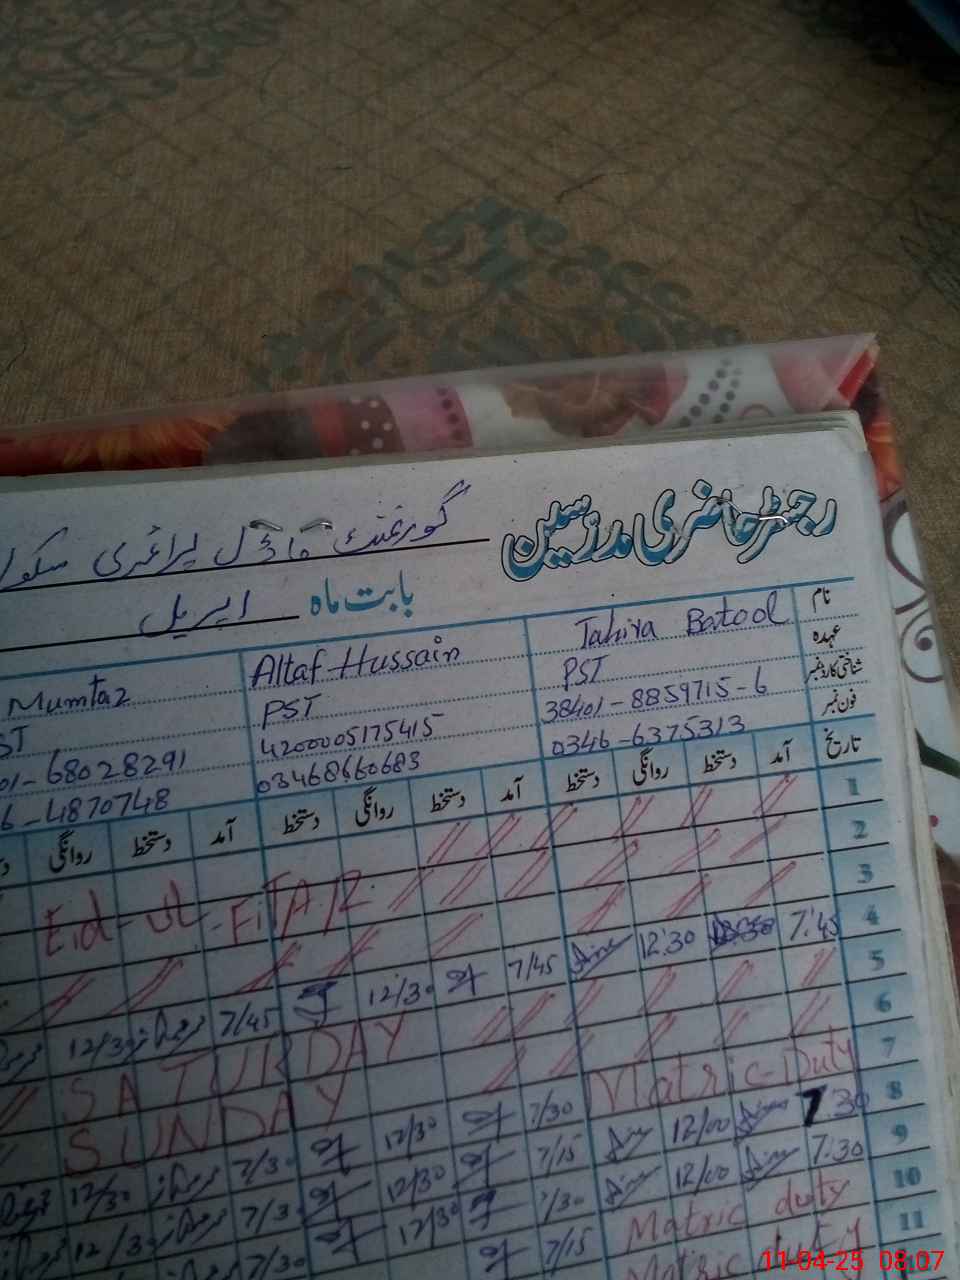 رجسٹر حاضری مدرسین گورنمنٹ ماڈل پرائمری سکول
بابت ماہ اپریل
نام Tahira Batool Altaf Hussain Mumtaz
عہدہ PST PST ST
شناختی کارڈ نمبر 38401-8859715-6 4200005175415 01-68028291
فون نمبر 0346-6375313 03468660683 6-4870748
تاریخ آمد دستخط روانگی دستخط آمد دستخط روانگی دستخط آمد دستخط روانگی
1
2 Eid-ul-FiTAR
3
4 7:45 12:30 7/45 12/30 7/45 12/30
5 SATURDAY
6 SUNDAY
7 Matric-Duty 7/30 12/30 7/30 12/30
8 7:30 12/00 7/15 12/30 7/30 12/30
9 7:30 12/00 7/30 12/30 7/30
10 Matric duty 7/15
11 Matric
11-04-25 08:07